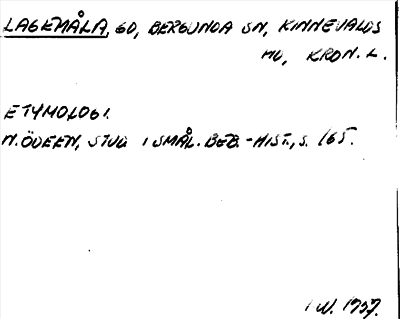 LAGEMÅLA, GD, BERGUNDA SN, KINNEVALDS
HD, KRON. L.
ETYMOLOGI.
N. ÖDEEN, STUD I SMÅL. BEB.-HIST., S. 165.
I W. 1737.